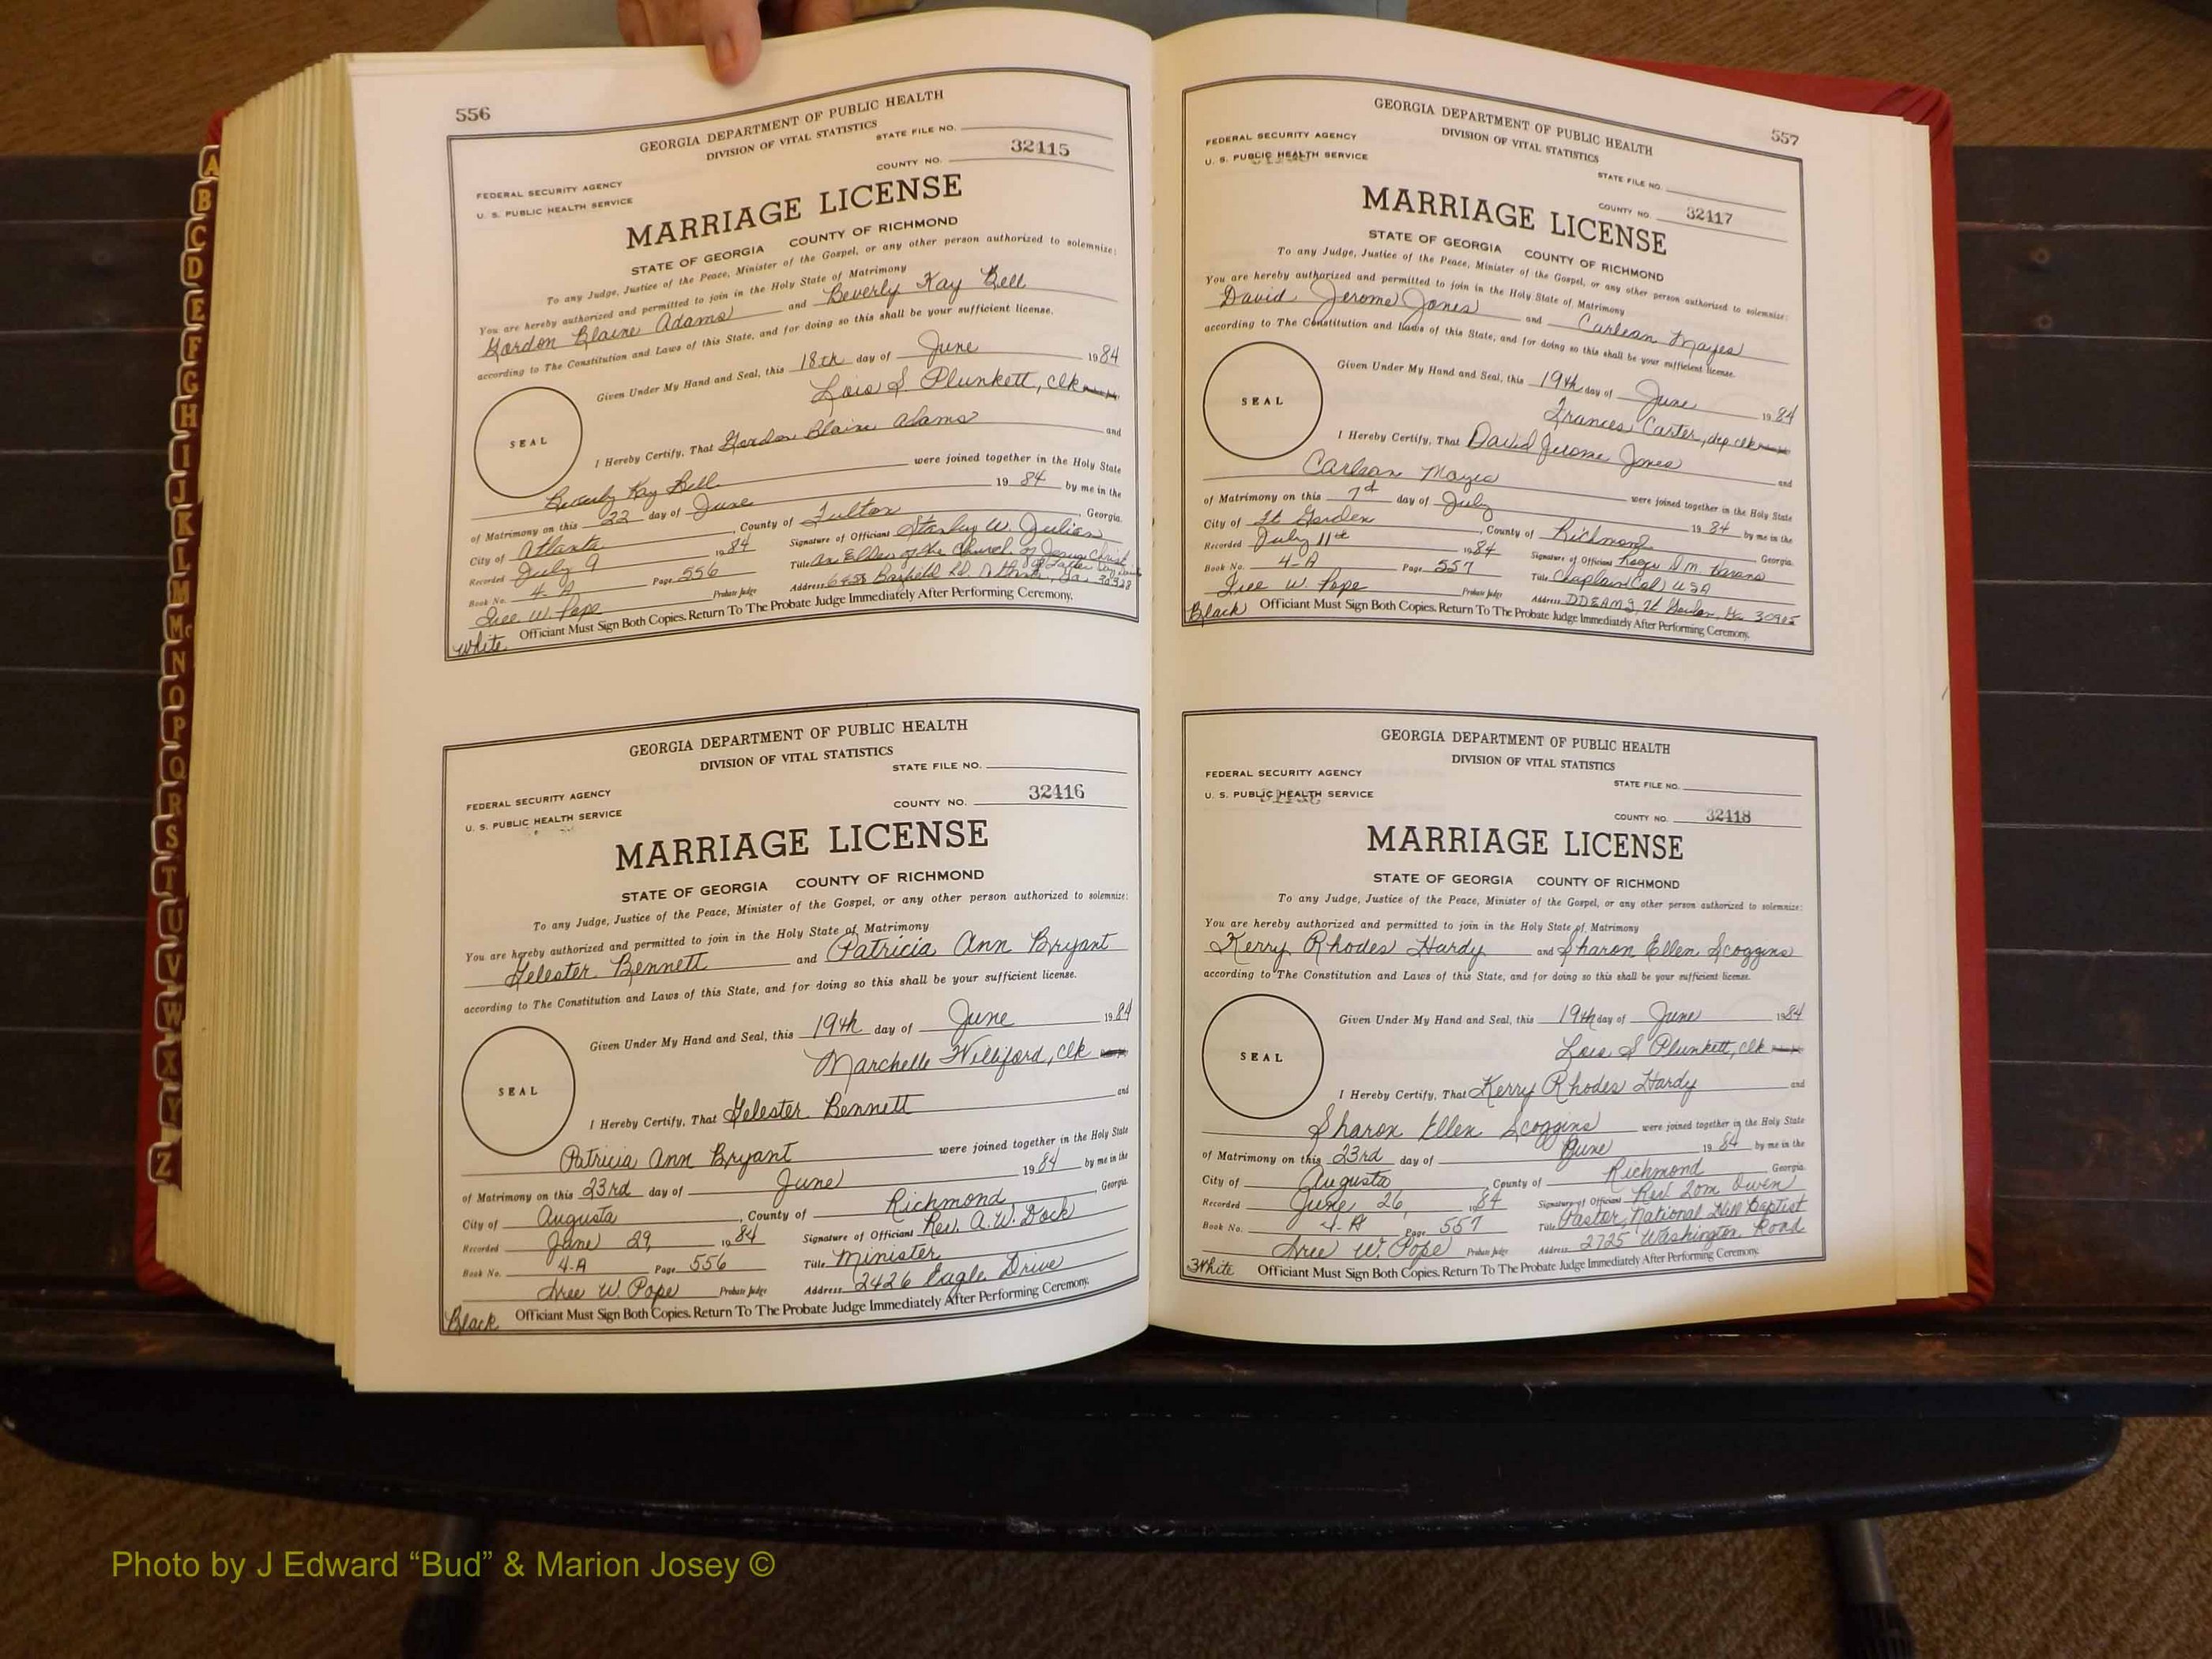 556
GEORGIA DEPARTMENT OF PUBLIC HEALTH
DIVISION OF VITAL STATISTICS
STATE FILE NO.
COUNTY NO. 32115
FEDERAL SECURITY AGENCY
U. S. PUBLIC HEALTH SERVICE
MARRIAGE LICENSE
STATE OF GEORGIA COUNTY OF RICHMOND
To any Judge, Justice of the Peace, Minister of the Gospel, or any other person authorized to solemnize:
You are hereby authorized and permitted to join in the Holy State of Matrimony
Gordon Blaine Adams and Beverly Kay Bell
according to The Constitution and Laws of this State, and for doing so this shall be your sufficient license.
Given Under My Hand and Seal, this 18th day of June 1984
Lois S. Plunkett, Clk
SEAL
I Hereby Certify, That Gordon Blaine Adams and
Beverly Kay Bell were joined together in the Holy State
of Matrimony on this 22 day of June 19 84 by me in the
City of Atlanta, County of Fulton, Georgia.
Recorded July 9 1984 Signature of Officiant Stanley W. Julian
Book No. 4-A Page 556 Title An Elder of the Church of Jesus Christ of Latter Day Saints
Iree W. Pope Probate Judge Address Barfield Rd. Atlanta, Ga. 30328
White Officiant Must Sign Both Copies. Return To The Probate Judge Immediately After Performing Ceremony.
GEORGIA DEPARTMENT OF PUBLIC HEALTH
DIVISION OF VITAL STATISTICS
STATE FILE NO.
FEDERAL SECURITY AGENCY
U. S. PUBLIC HEALTH SERVICE
COUNTY NO. 32116
MARRIAGE LICENSE
STATE OF GEORGIA COUNTY OF RICHMOND
To any Judge, Justice of the Peace, Minister of the Gospel, or any other person authorized to solemnize:
You are hereby authorized and permitted to join in the Holy State of Matrimony
Gelester Bennett and Patricia Ann Bryant
according to The Constitution and Laws of this State, and for doing so this shall be your sufficient license.
Given Under My Hand and Seal, this 19th day of June 1984
Marchelle Williford, Clk
SEAL
I Hereby Certify, That Gelester Bennett and
Patricia Ann Bryant were joined together in the Holy State
of Matrimony on this 23rd day of June 1984 by me in the
City of Augusta, County of Richmond, Georgia.
Recorded June 29, 1984 Signature of Officiant Rev. A.W. Dock
Book No. 4-A Page 556 Title Minister
Iree W. Pope Probate Judge Address 2426 Eagle Drive
Black Officiant Must Sign Both Copies. Return To The Probate Judge Immediately After Performing Ceremony.
557
GEORGIA DEPARTMENT OF PUBLIC HEALTH
DIVISION OF VITAL STATISTICS
FEDERAL SECURITY AGENCY
U. S. PUBLIC HEALTH SERVICE
STATE FILE NO.
COUNTY NO. 32117
MARRIAGE LICENSE
STATE OF GEORGIA COUNTY OF RICHMOND
To any Judge, Justice of the Peace, Minister of the Gospel, or any other person authorized to solemnize:
You are hereby authorized and permitted to join in the Holy State of Matrimony
David Jerome Jones and Carlean Mayes
according to The Constitution and Laws of this State, and for doing so this shall be your sufficient license.
Given Under My Hand and Seal, this 19th day of June 1984
Frances Carter, dep clk
SEAL
I Hereby Certify, That David Jerome Jones and
Carlean Mayes were joined together in the Holy State
of Matrimony on this 7 day of July 19 84 by me in the
City of Ft Gordon, County of Richmond, Georgia.
Recorded July 11th 1984 Signature of Officiant
Book No. 4-A Page 557 Title Chaplain (Col) USA
Iree W. Pope Probate Judge Address Ft Gordon, Ga 30905
Black Officiant Must Sign Both Copies. Return To The Probate Judge Immediately After Performing Ceremony.
GEORGIA DEPARTMENT OF PUBLIC HEALTH
DIVISION OF VITAL STATISTICS
FEDERAL SECURITY AGENCY
U. S. PUBLIC HEALTH SERVICE
STATE FILE NO.
COUNTY NO. 32118
MARRIAGE LICENSE
STATE OF GEORGIA COUNTY OF RICHMOND
To any Judge, Justice of the Peace, Minister of the Gospel, or any other person authorized to solemnize:
You are hereby authorized and permitted to join in the Holy State of Matrimony
Kerry Rhodes Hardy and Sharon Ellen Scoggins
according to The Constitution and Laws of this State, and for doing so this shall be your sufficient license.
Given Under My Hand and Seal, this 19th day of June 1984
Lois S Plunkett, clk
SEAL
I Hereby Certify, That Kerry Rhodes Hardy and
Sharon Ellen Scoggins were joined together in the Holy State
of Matrimony on this 23rd day of June 19 84 by me in the
City of Augusta, County of Richmond, Georgia.
Recorded June 26, 1984 Signature of Officiant Rev. Tom Owen
Book No. 4-A Page 557 Title Pastor, National Hill Baptist
Iree W. Pope Probate Judge Address 2725 Washington Road
White Officiant Must Sign Both Copies. Return To The Probate Judge Immediately After Performing Ceremony.
A
B
C
D
E
F
G
H
I
J
K
L
M
Mc
N
O
P
Q
R
S
T
U
V
W
X
Y
Z
Photo by J Edward “Bud” & Marion Josey ©